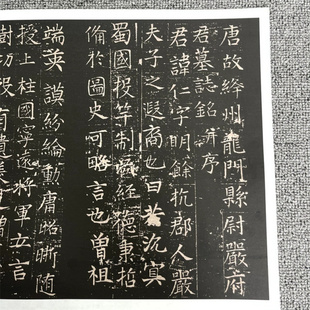 唐故絳州龍門縣尉嚴府
君墓誌銘并序
君諱仁字明餘杭郡人嚴
夫子之遐裔也曰若沉冥
蜀國投竿制嚴經德秉哲
備於圖史可略言也曾祖
端英謨紛綸勳庸昭晰隨
授上柱國寧遠將軍五言
樹功